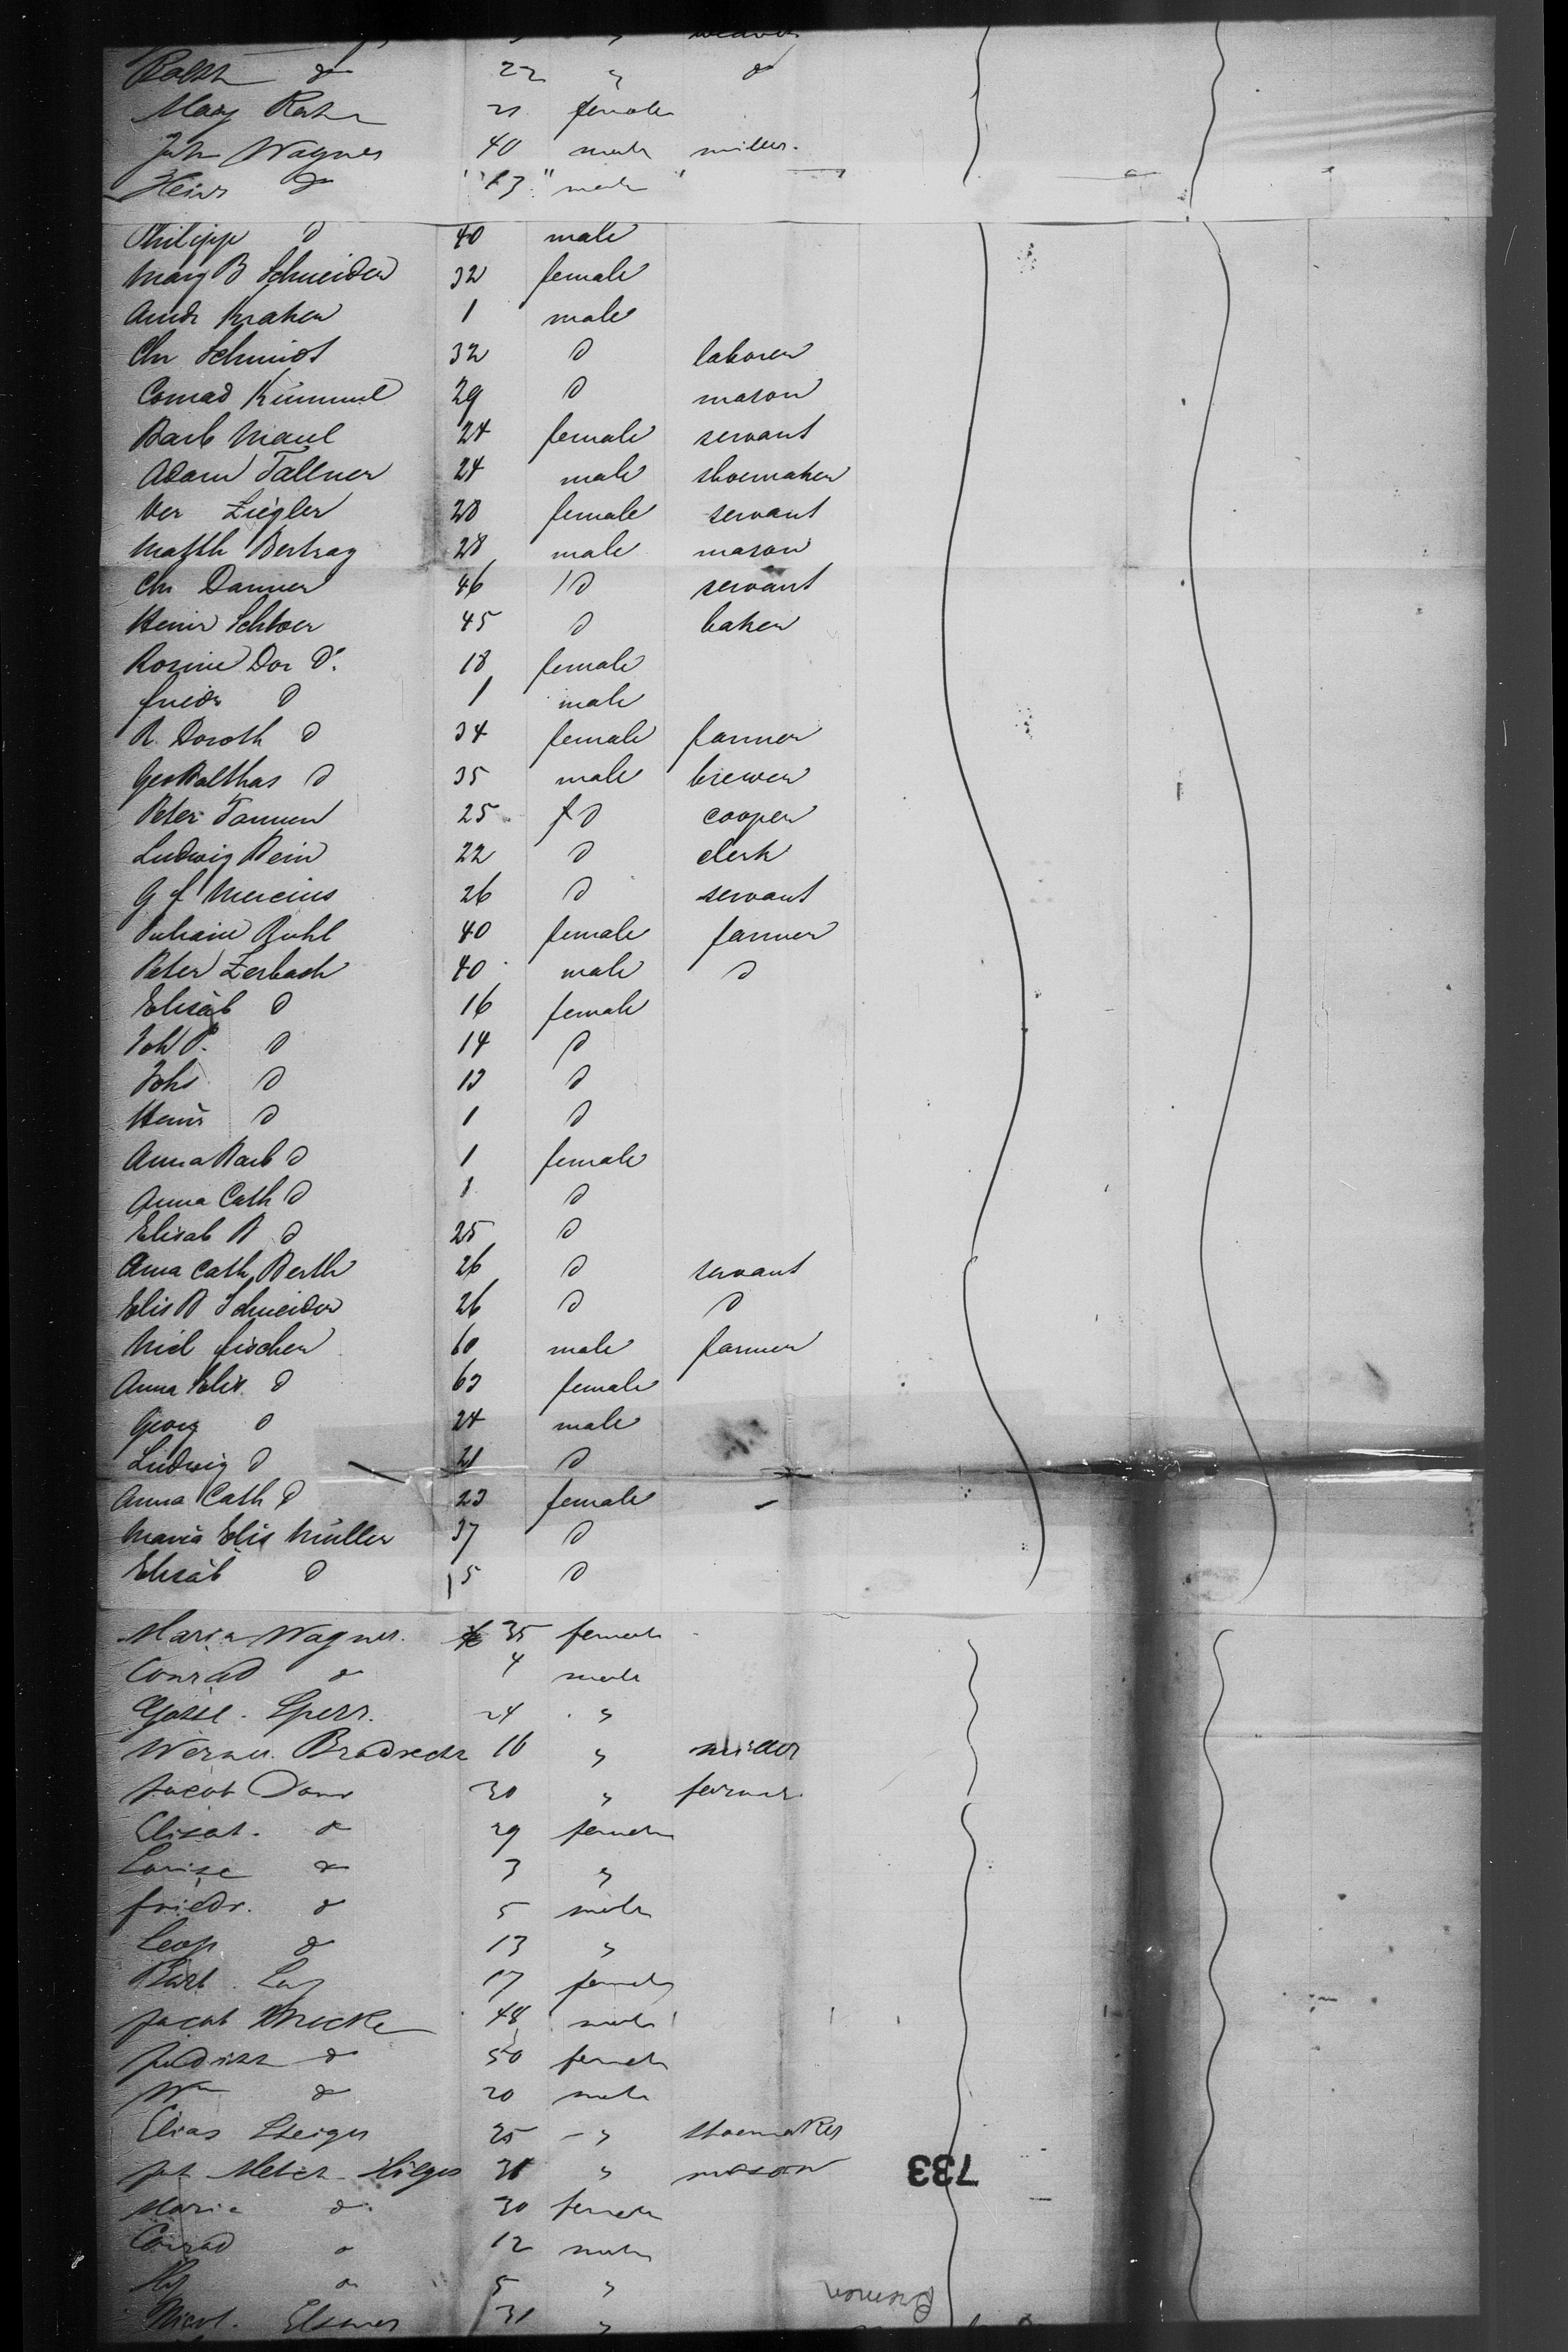 22 " do
Mary 21 female
John Wagner 40 male miller.
Heinr do 13 " male "
Philipp do 40 male
Marg B Schneider 32 female
Andr Kraken 1 male
Chr Schmidt 32 do laborer
Conrad Kümmel 29 do mason
Barb Maul 24 female servant
Adam Fallner 24 male shoemaker
Ver Ziegler 20 female servant
Matth Bertrag 28 male mason
Chr Danner 46 do servant
Heinr Schloer 45 do baker
Rosine Dor do. 18 female
Friedr do 1 male
R. Doroth do 34 female farmer
Geo Balthas do 35 male brewer
Peter 25 do cooper
Ludwig Bein 22 do clerk
G f Mercius 26 do servant
Juliane Ruhl 40 female farmer
Peter Zerbach 40 male do
Elisab do 16 female
Joh P. do 14 do
Johs do 13 do
Heinr do 1 do
Anna Barb do 1 female
Anna Cath do 1 do
Elisab B do 25 do
Anna Cath Berth 26 do servant
Elis B Schneider 26 do do
Nicl Fischer 60 male farmer
Anna Elis. do 63 female
Georg do 24 male
Ludwig do 21 do
Anna Cath do 23 female
Maria Elis Müller 37 do
Elisab do 15 do
Maria Wagner. 35 female
Conrad do 4 male
24 "
Werner 16 " miller
Jacob 30 " farmer
Elisab. do 29 female
Louise do 3 "
Friedr. do 5 male
Leop do 13 "
Barb. 17 female
Jacob 48 male
Judith do 50 female
Wm do 20 male
Elias Steiger 25 " shoemaker
Hilges " mason
Maria do 30 female
Conrad do 12 male
Hy do 5 "
Nicol. 31 "
733